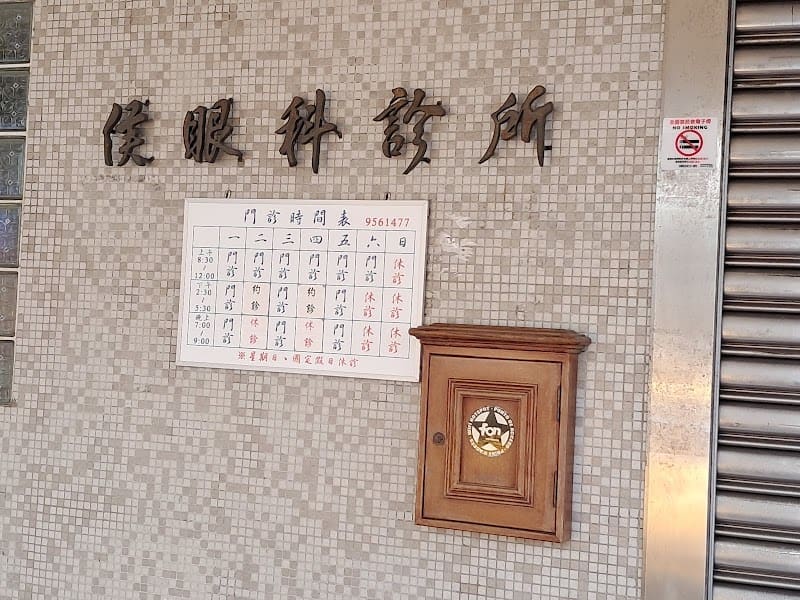 侯眼科診所
門診時間表 9561477
一 二 三 四 五 六 日
上午 8:30 / 12:00 門診 門診 門診 門診 門診 門診 休診
下午 2:30 / 5:30 門診 約診 門診 約診 門診 休診 休診
晚上 7:00 / 9:00 門診 休診 門診 休診 門診 休診 休診
※星期日、國定假日休診
NO SMOKING
fon